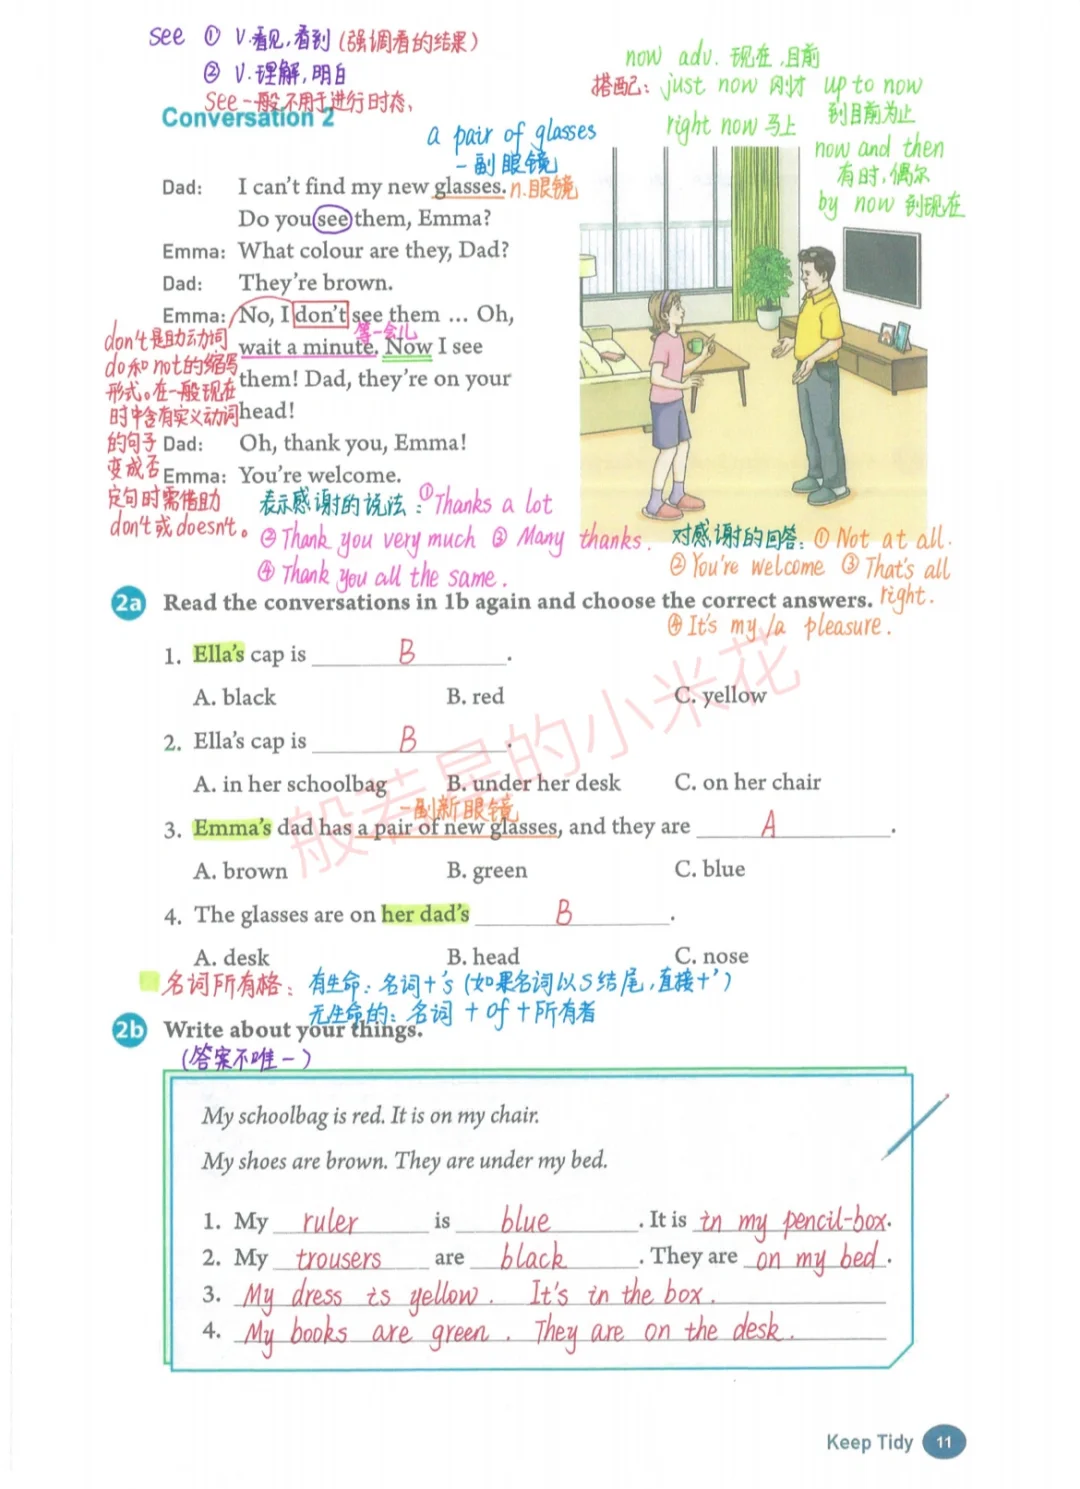 see ① v.看见,看到(强调看的结果)
② v.理解,明白
See一般不用于进行时态、
now adv. 现在,目前
搭配: just now 刚才 up to now
到目前为止
right now 马上
now and then
有时,偶尔
by now 到现在
Conversation 2
a pair of glasses
一副眼镜
Dad: I can't find my new glasses. n.眼镜
Do you see them, Emma?
Emma: What colour are they, Dad?
Dad: They're brown.
Emma: No, I don't see them … Oh,
等一会儿
wait a minute. Now I see
them! Dad, they're on your
head!
Dad: Oh, thank you, Emma!
Emma: You're welcome.
don't是助动词
do和not的缩写
形式。在一般现在
时中含有实义动词
的句子
变成否
定句时需借助
don't或doesn't。
表示感谢的说法: ①Thanks a lot
②Thank you very much ③ Many thanks.
④ Thank you all the same.
对感谢的回答: ① Not at all.
② You're welcome ③ That's all
right.
④ It's my /a pleasure.
2a Read the conversations in 1b again and choose the correct answers.
1. Ella's cap is B.
A. black B. red C. yellow
2. Ella's cap is B.
A. in her schoolbag B. under her desk C. on her chair
一副新眼镜
3. Emma's dad has a pair of new glasses, and they are A.
A. brown B. green C. blue
4. The glasses are on her dad's B.
A. desk B. head C. nose
名词所有格: 有生命: 名词+'s (如果名词以s结尾,直接+')
无生命的: 名词 + of + 所有者
2b Write about your things.
(答案不唯一)
My schoolbag is red. It is on my chair.
My shoes are brown. They are under my bed.
1. My ruler is blue. It is in my pencil-box.
2. My trousers are black. They are on my bed.
3. My dress is yellow. It's in the box.
4. My books are green. They are on the desk.
般若景的小米花
Keep Tidy 11